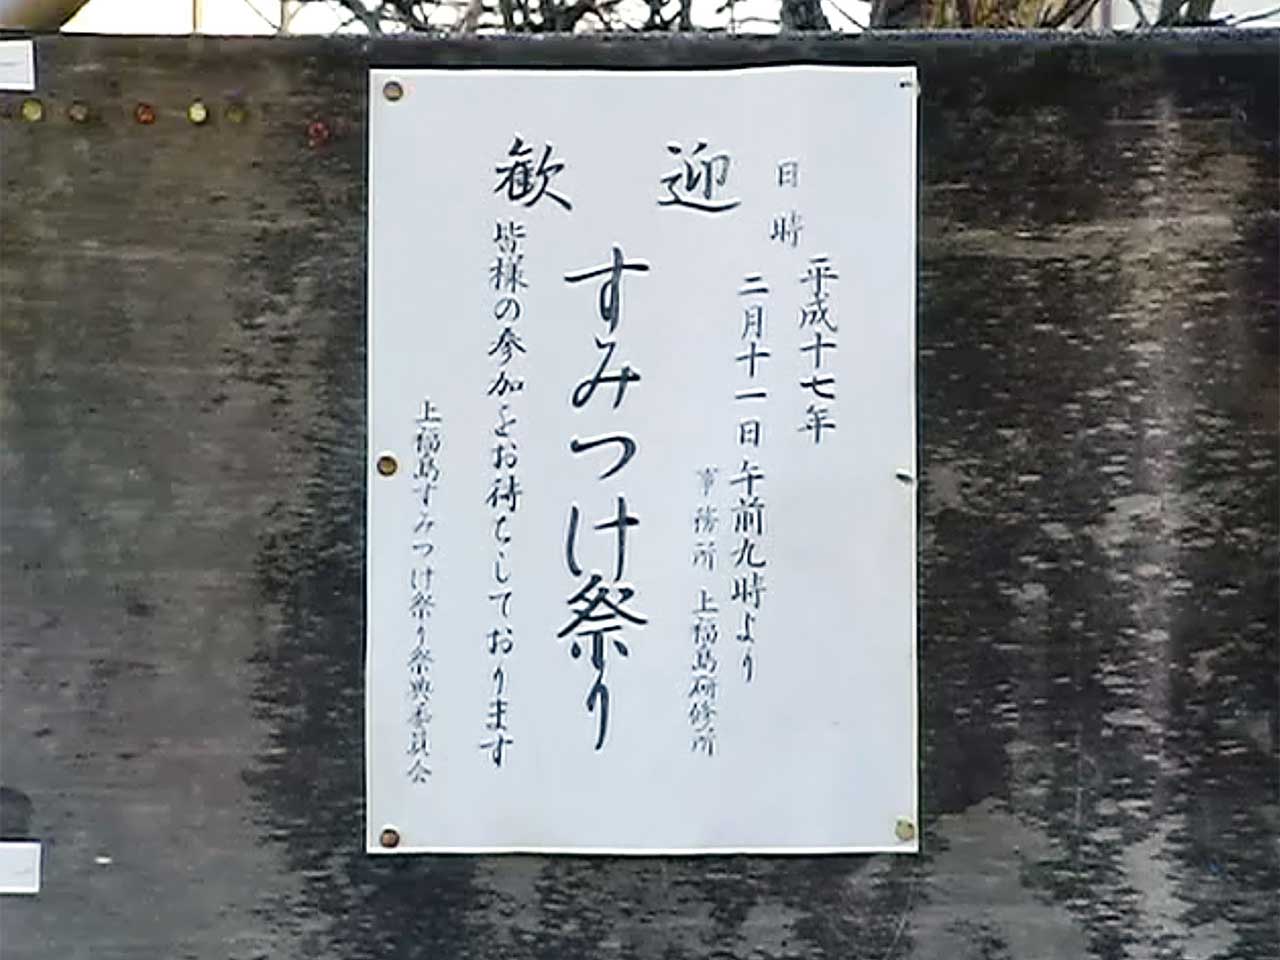 歓迎
日時
平成十七年
二月十一日午前九時より
事務所 上福島研修所
すみつけ祭り
皆様の参加をお待ちしております
上福島すみつけ祭り祭典委員会